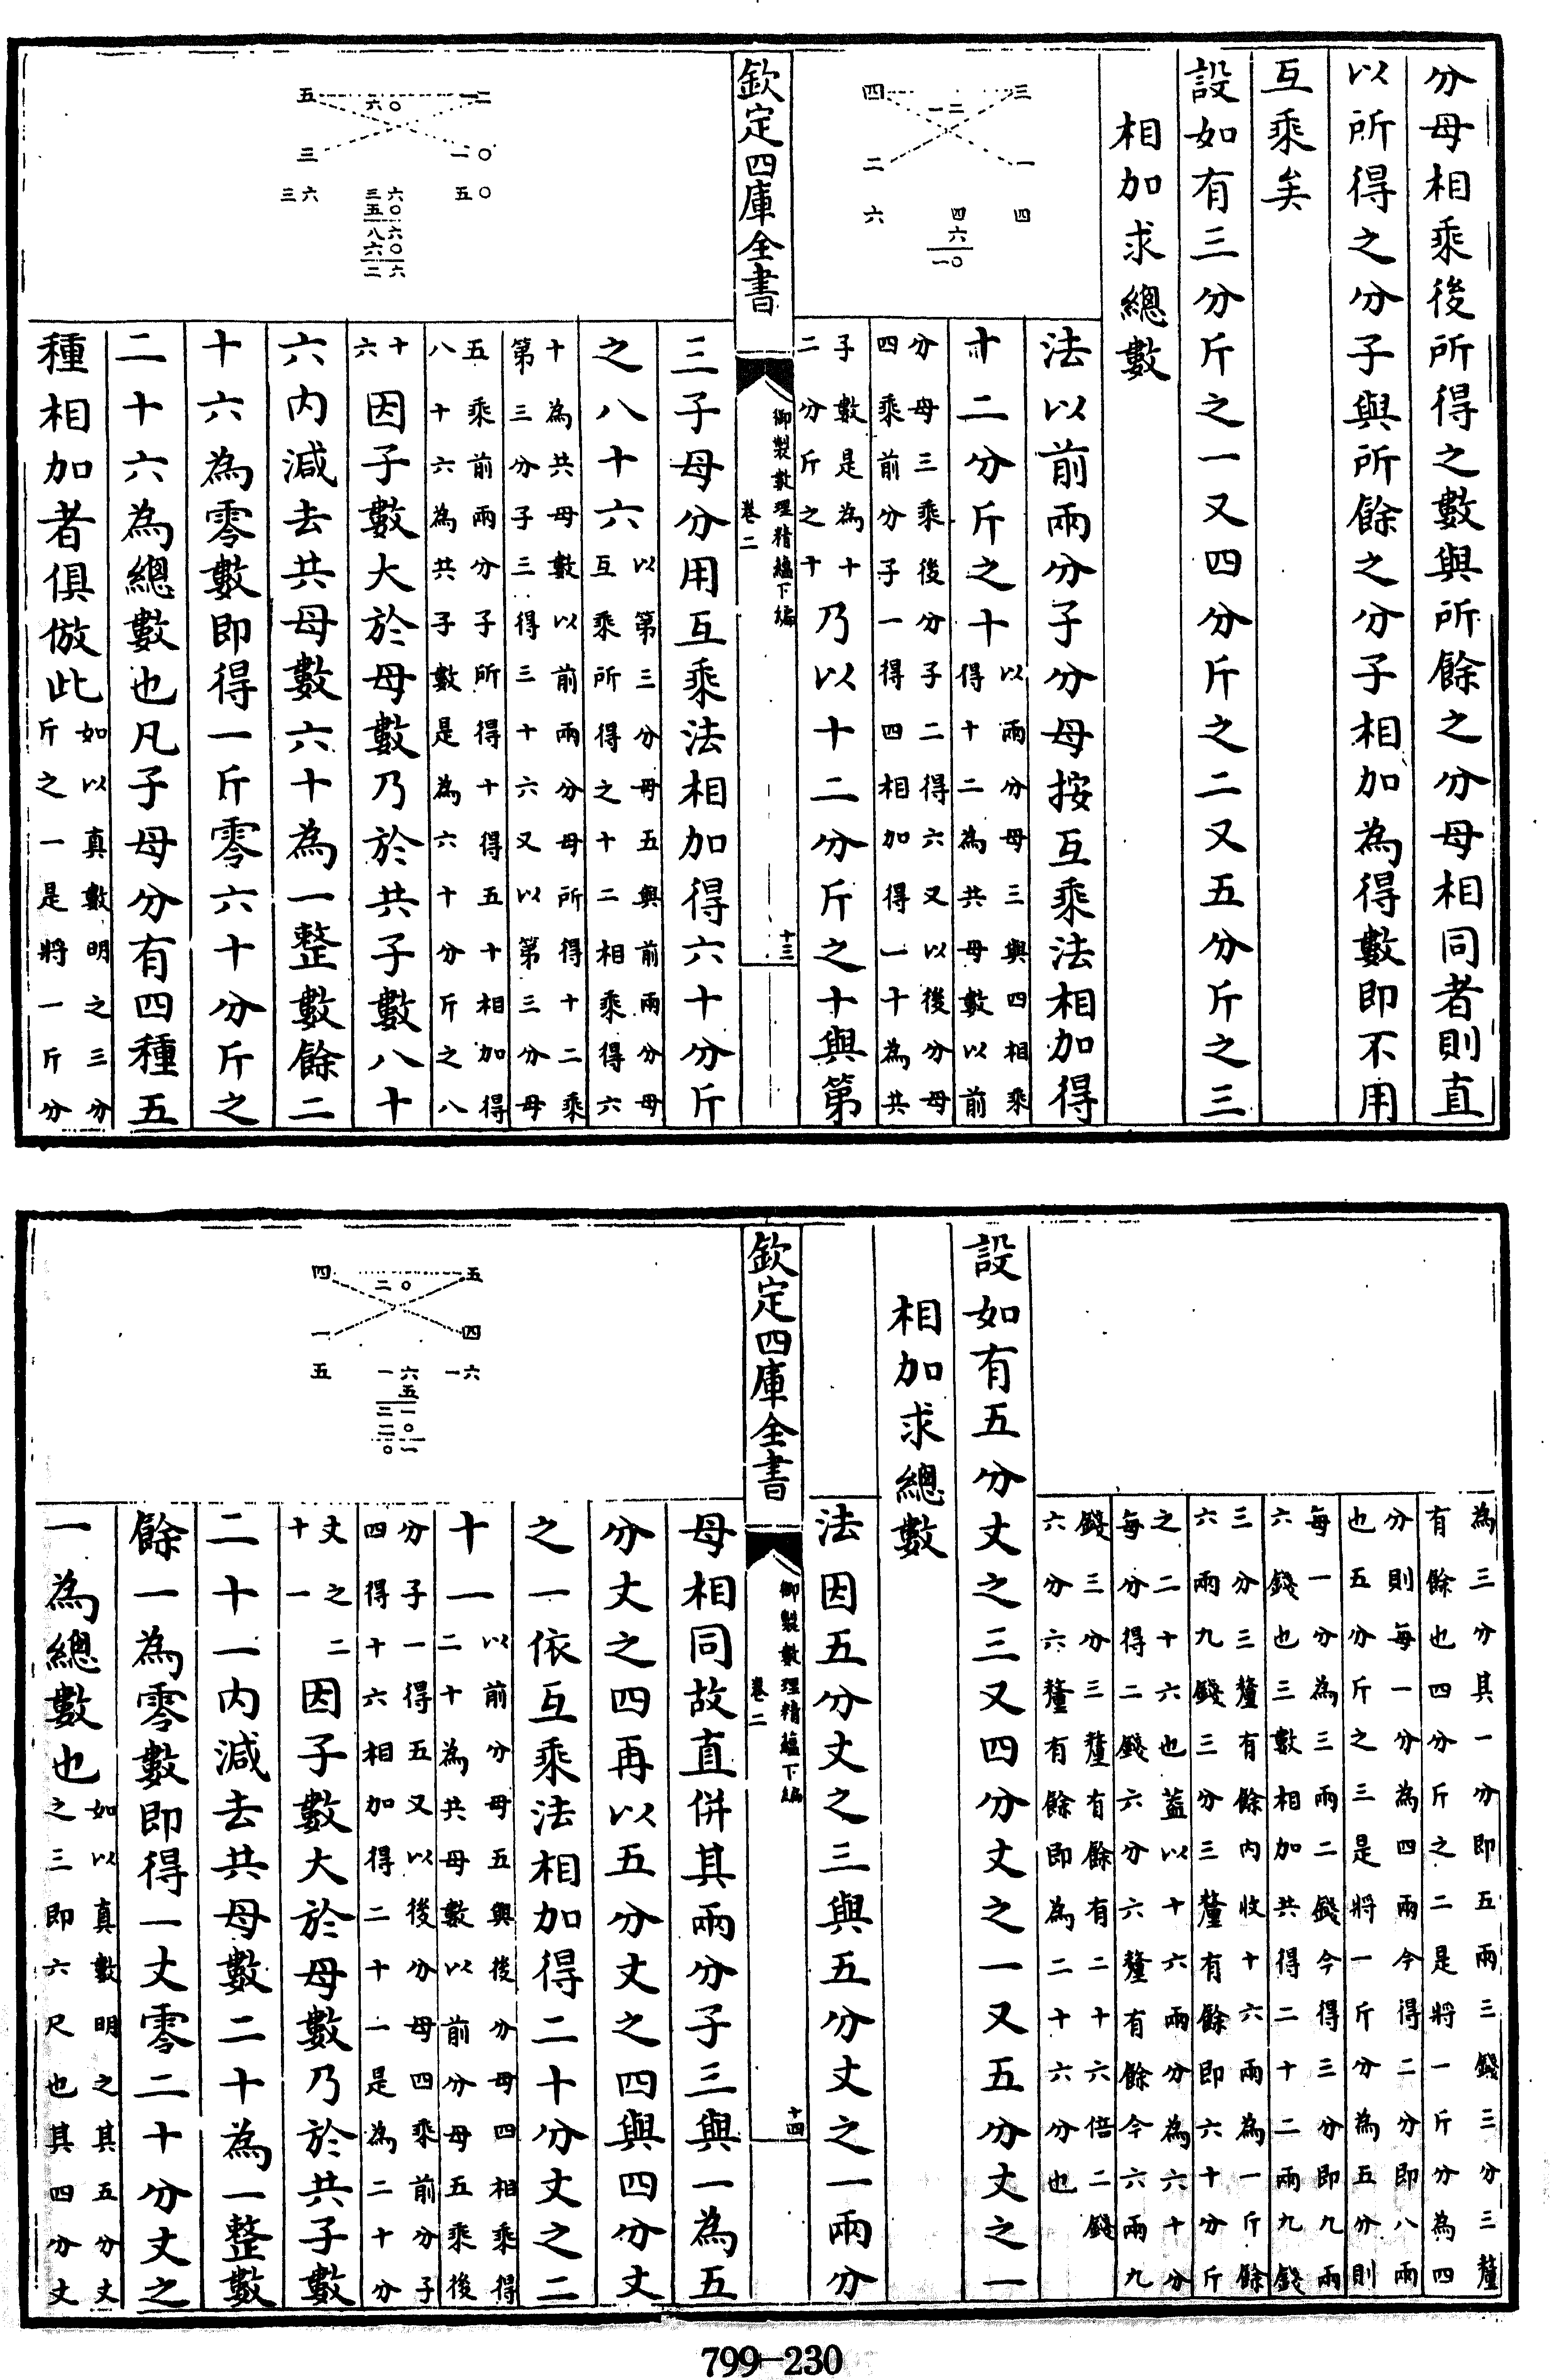 分母相乘後所得之數與所餘之分母相同者則直
以所得之分子與所餘之分子相加為得數即不用
互乘矣
設如有三分斤之一又四分斤之二又五分斤之三
相加求總數
四 一二 三
二 一
六 四
四
六
一〇
法以前兩分子分母按互乘法相加得
十二分斤之十以兩分母三與四相乘
得十二為共母數以前
分母三乘後分子二得六又以後分母
四乘前分子一得四相加得一十為共
子數是為十
二分斤之十乃以十二分斤之十與第
欽定四庫全書
御製數理精藴下編
卷二
十三
五 六〇 一二
三 一〇
三六 五〇
三六
五〇
八六
六〇
二六
三子母分用互乘法相加得六十分斤
之八十六以第三分母五與前兩分母
互乘所得之十二相乘得六
十為共母數以前兩分母所得十二乘
第三分子三得三十六又以第三分母
五乘前兩分子所得十得五十相加得
八十六為共子數是為六十分斤之八
十六因子數大於母數乃於共子數八十
六內減去共母數六十為一整數餘二
十六為零數即得一斤零六十分斤之
二十六為總數也凡子母分有四種五
種相加者俱倣此如以真數明之三分
斤之一是將一斤分
為三分其一分即五兩三錢三分三釐
有餘也四分斤之二是將一斤分為四
分則每一分為四兩今得二分即八兩
也五分斤之三是將一斤分為五分則
每一分為三兩二錢今得三分即九兩
六錢也三數相加共得二十二兩九錢
三分三釐有餘內收十六兩為一斤餘
六兩九錢三分三釐有餘即六十分斤
之二十六也蓋以十六兩分為六十分
每分得二錢六分六釐有餘今六兩九
錢三分三釐有餘有二十六倍二錢
六分六釐有餘即為二十六分也
設如有五分丈之三又四分丈之一又五分丈之一
相加求總數
法因五分丈之三與五分丈之一兩分
欽定四庫全書
御製數理精藴下編
卷二
十四
四 二〇 五
一 四
五 一六
一六
五
二一
二〇
〇一
母相同故直併其兩分子三與一為五
分丈之四再以五分丈之四與四分丈
之一依互乘法相加得二十分丈之二
十一以前分母五與後分母四相乘得
二十為共母數以前分母五乘後
分子一得五又以後分母四乘前分子
四得十六相加得二十一是為二十分
丈之二
十一因子數大於母數乃於共子數
二十一內減去共母數二十為一整數
餘一為零數即得一丈零二十分丈之
一為總數也如以真數明之其五分丈
之三即六尺也其四分丈
799-230